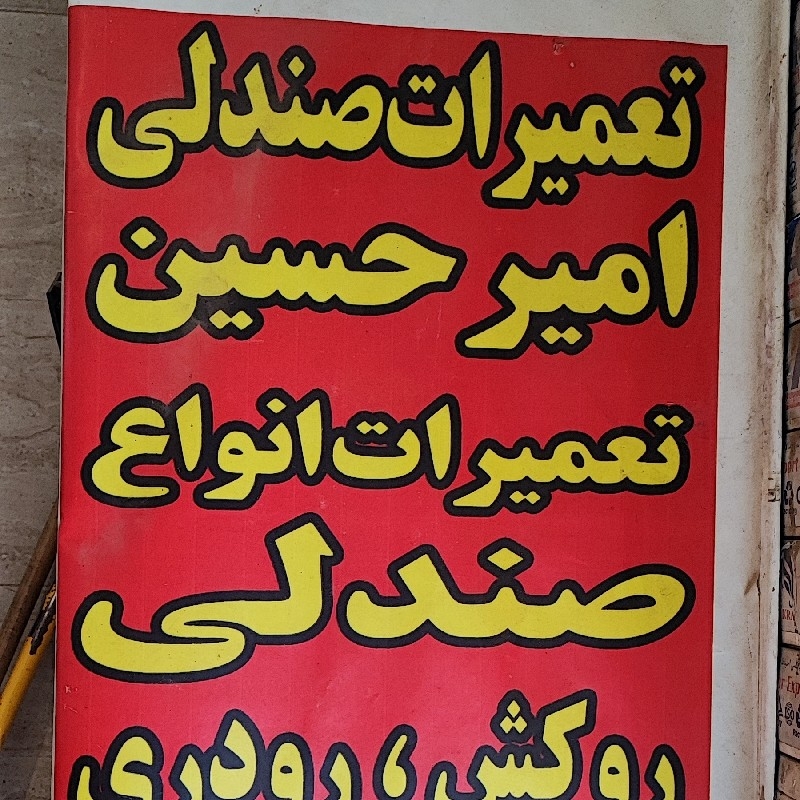 تعمیرات صندلی
امیر حسین
تعمیرات انواع
صندلی
روکش ، رودری